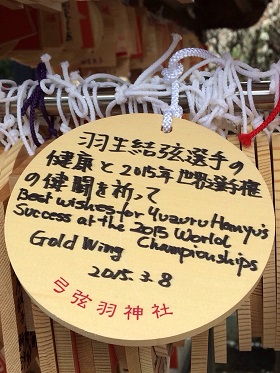 羽生結弦選手の
健康と2015年世界選手権
の健闘を祈って
Best wishes for Yuzuru Hanyu's
Success at the 2015 World
Championships
Gold Wing
2015.3.8
弓弦羽神社